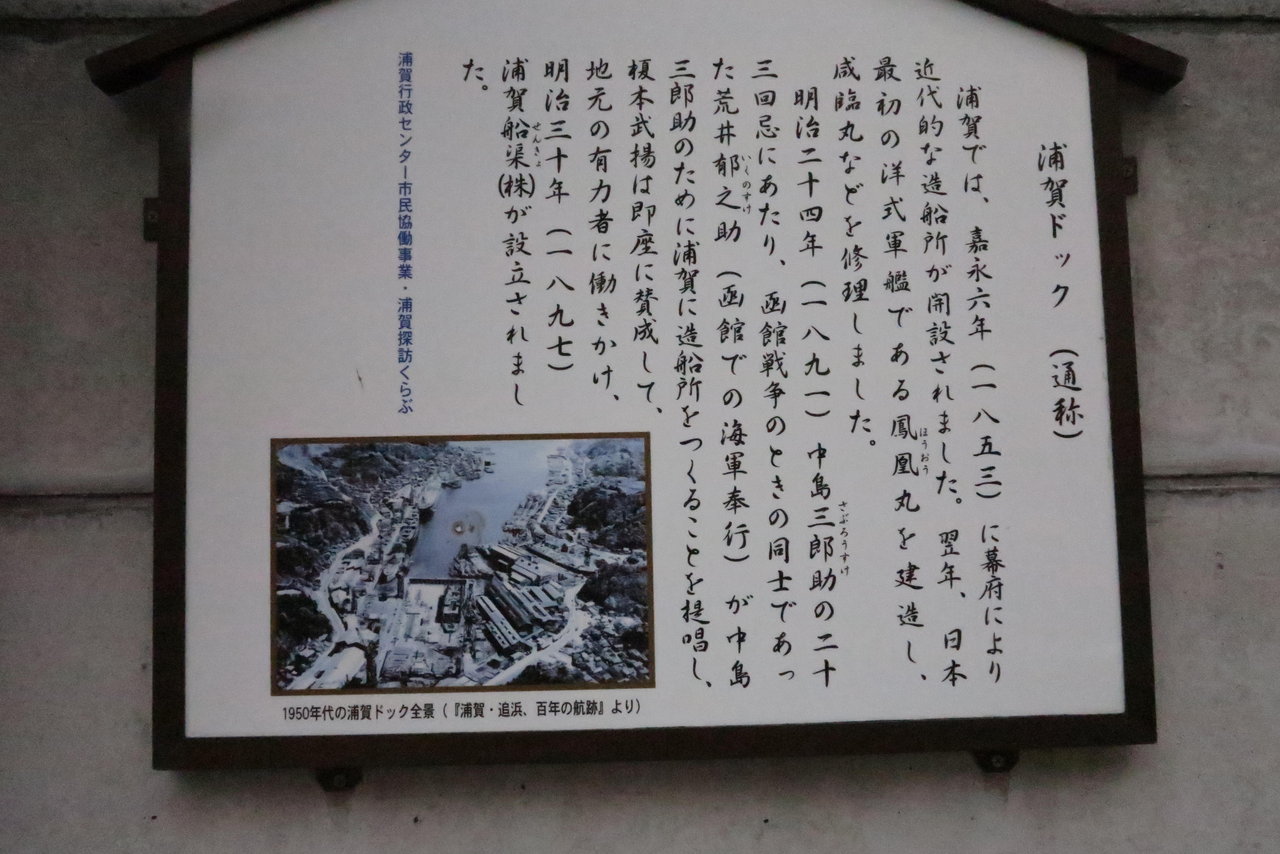 浦賀ドック（通称）
浦賀では、嘉永六年（一八五三）に幕府により
近代的な造船所が開設されました。翌年、日本
最初の洋式軍艦である鳳凰丸を建造し、
ほうおう
咸臨丸などを修理しました。
明治二十四年（一八九一）中島三郎助の二十
さぶろうすけ
三回忌にあたり、函館戦争のときの同士であっ
た荒井郁之助（函館での海軍奉行）が中島
いくのすけ
三郎助のために浦賀に造船所をつくることを提唱し、
榎本武揚は即座に賛成して、
地元の有力者に働きかけ、
明治三十年（一八九七）
浦賀船渠(株)が設立されまし
せんきょ
た。
浦賀行政センター市民協働事業・浦賀探訪くらぶ
1950年代の浦賀ドック全景（『浦賀・追浜、百年の航跡』より）